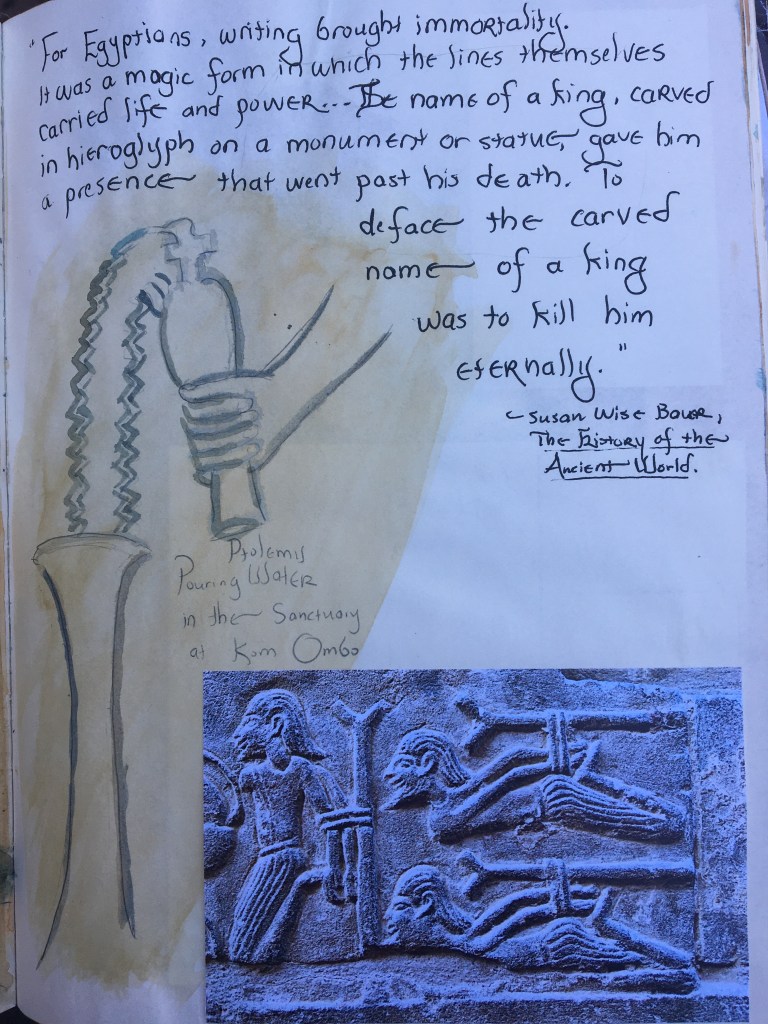 "For Egyptians, writing brought immortality.
It was a magic form in which the lines themselves
carried life and power... The name of a king, carved
in hieroglyph on a monument or statue, gave him
a presence that went past his death. To
deface the carved
name of a king
was to kill him
eternally."
- Susan Wise Bauer,
The History of the
Ancient World.
Ptolemis
Pouring Water
in the Sanctuary
at Kom Ombo